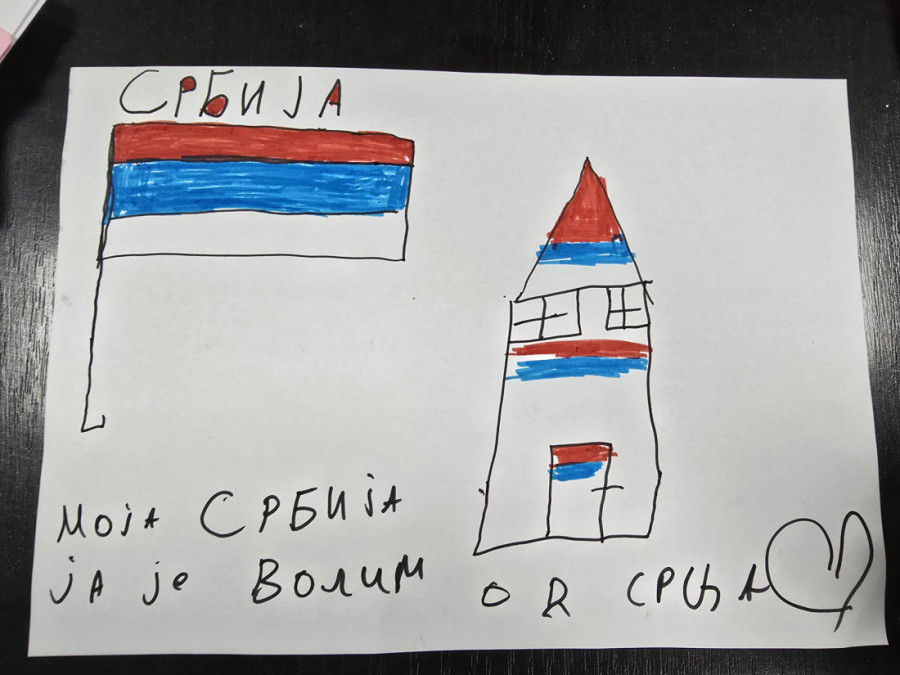 СРБИЈА
МоЈА СРБИЈА
ЈА је ВОЛИМ ОД СРЦА